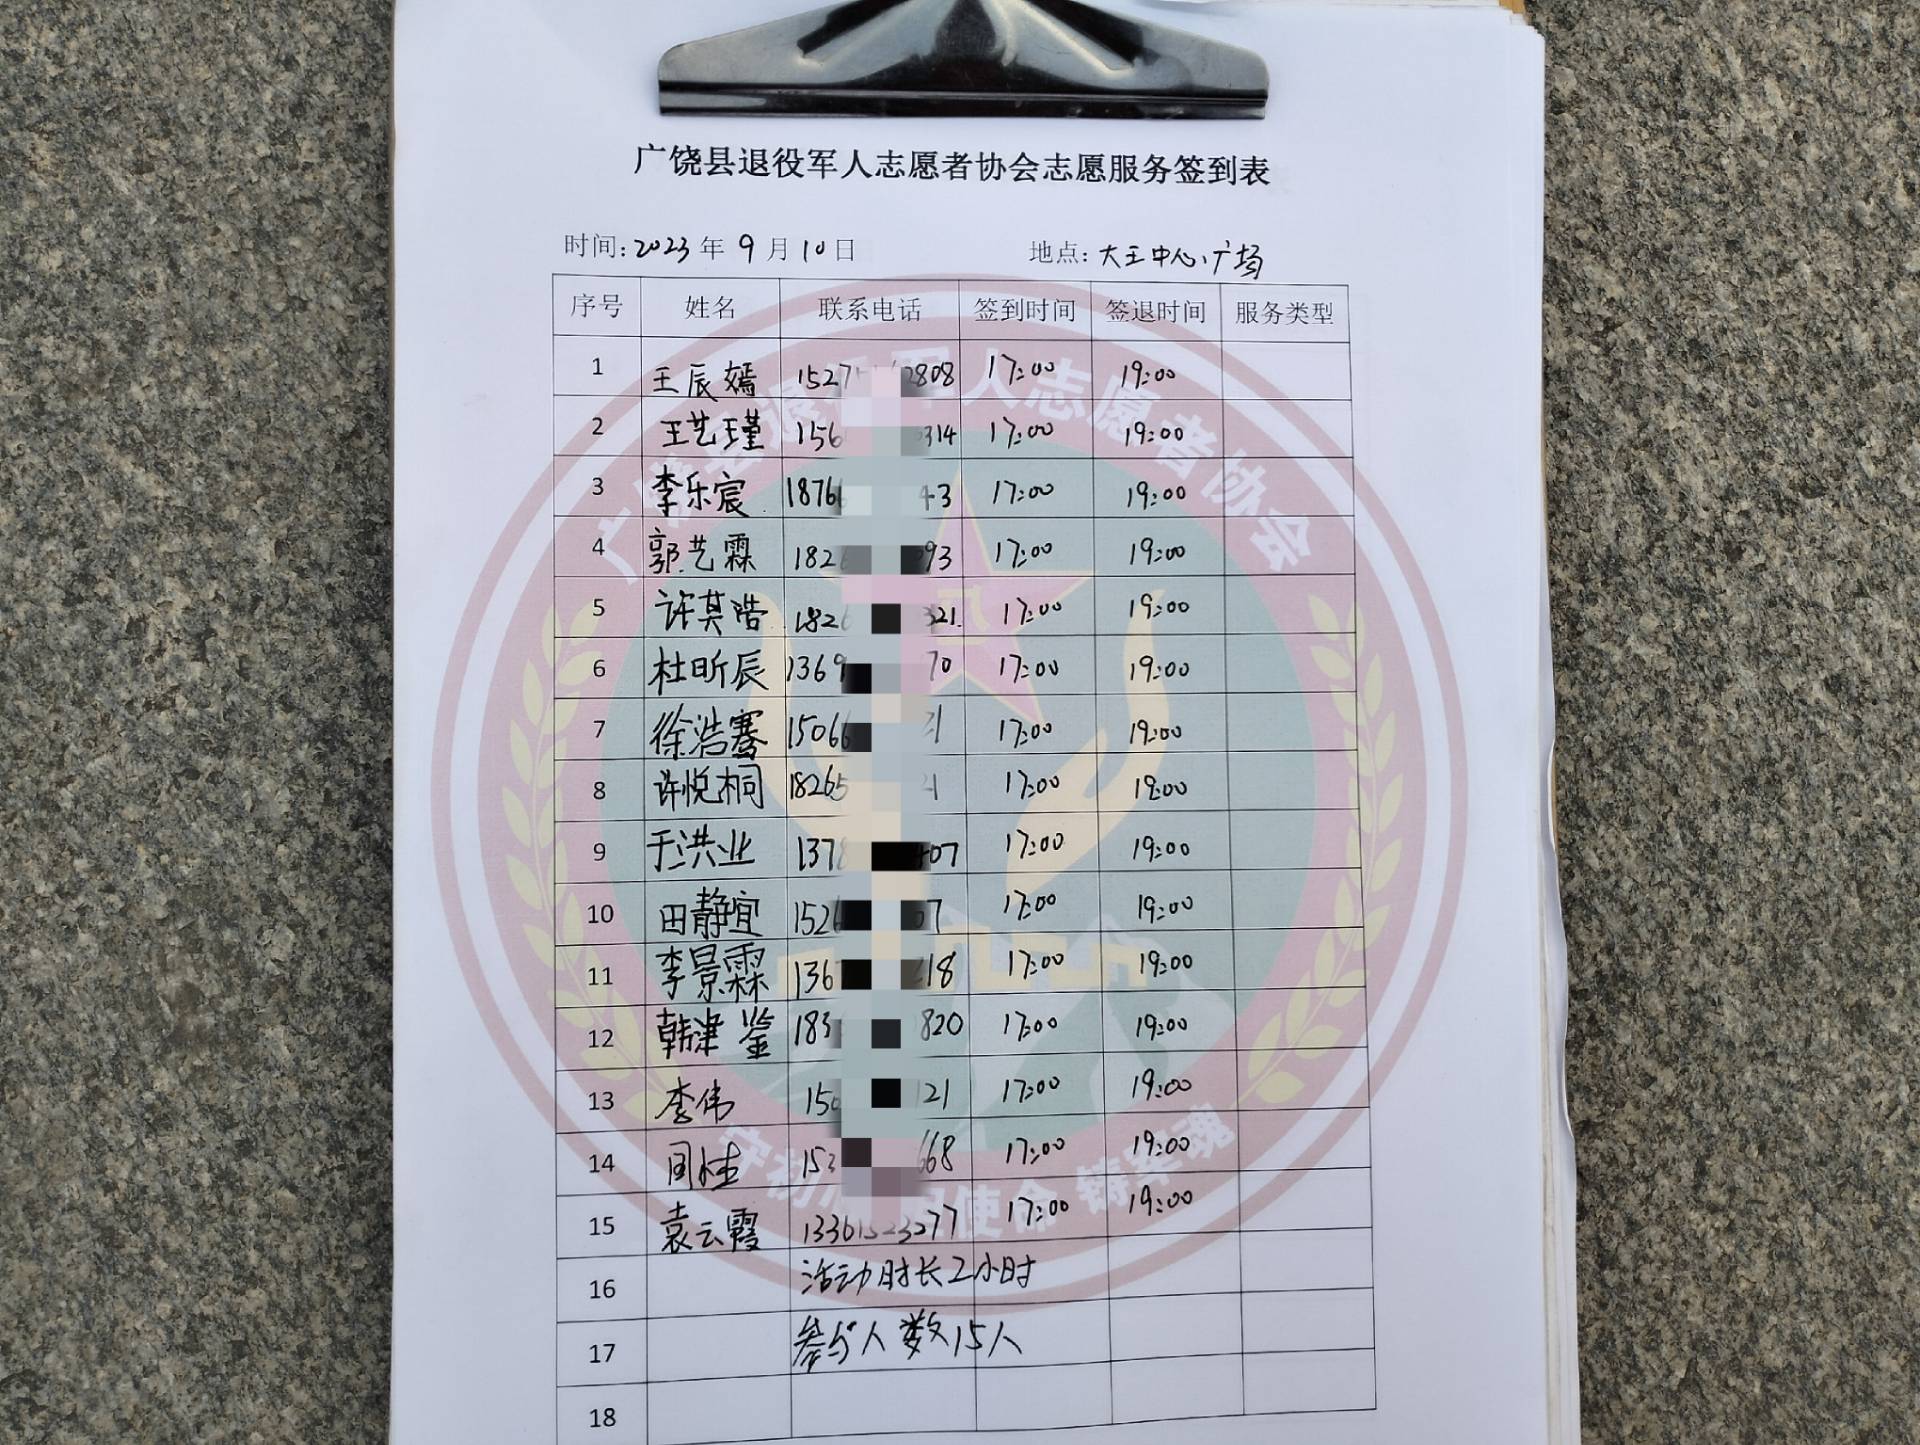 广饶县退役军人志愿者协会志愿服务签到表
时间: 2023 年 9 月 10 日 地点: 大王中心广场
序号 姓名 联系电话 签到时间 签退时间 服务类型
1 王辰嫣 1527 2808 17:00 19:00
2 王艺瑾 156 314 17:00 19:00
3 李乐宸 1876 43 17:00 19:00
4 郭艺霖 182 93 17:00 19:00
5 许其浩 182 321 17:00 19:00
6 杜昕辰 1369 70 17:00 19:00
7 徐浩骞 1506 1 17:00 19:00
8 许悦桐 18265 1 17:00 19:00
9 于洪业 137 407 17:00 19:00
10 田静宜 152 07 17:00 19:00
11 李景霖 136 218 17:00 19:00
12 韩津鉴 183 820 17:00 19:00
13 李伟 150 121 17:00 19:00
14 153 668 17:00 19:00
15 袁云霞 13361523277 17:00 19:00
16 活动时长2小时
17 参与人数15人
18
广饶县退役军人志愿者协会
守初 使命 铸军魂